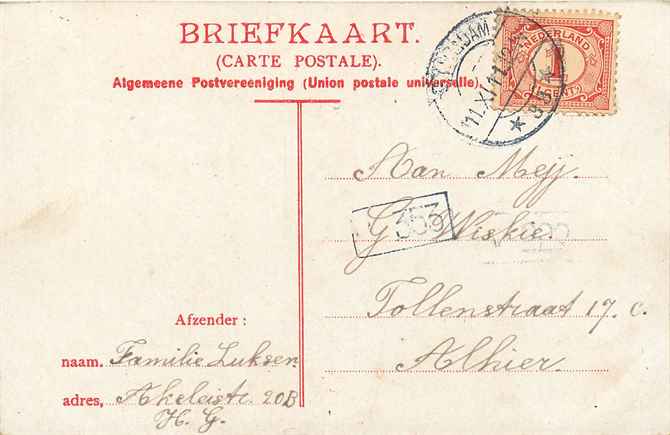 BRIEFKAART.
(CARTE POSTALE).
Algemeene Postvereeniging (Union postale universelle)
NEDERLAND
1
CENT
11.XI.11
Aan Mejj.
G Wiskie.
353
Tollenstraat 17. c.
Alhier.
Afzender :
naam. Familie Luksen
adres, Akeleistr. 20B
H. G.